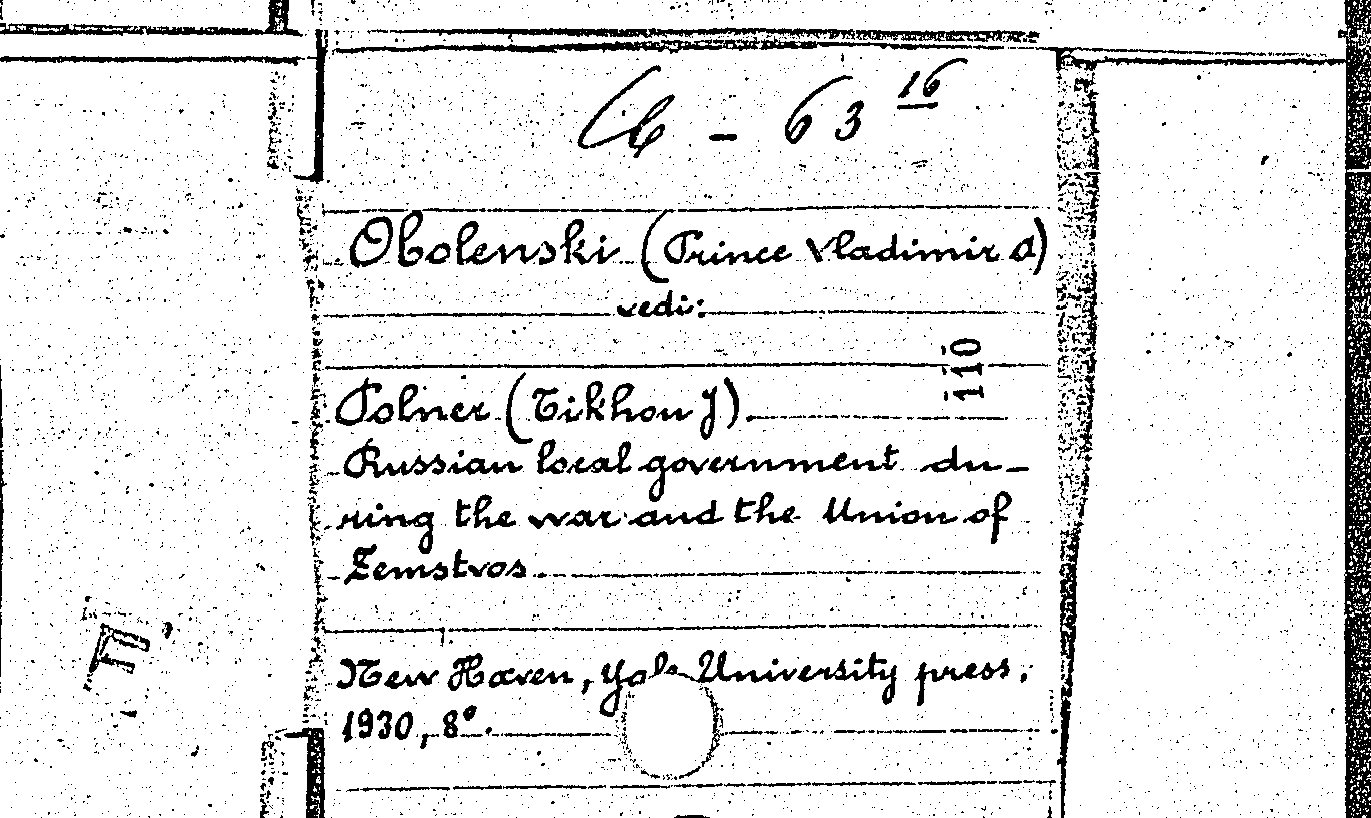 63 16
Obolenski (Prince Vladimir A)
vedi:
110
Polner (Tikhon J).
Russian local government du-
ring the war and the Union of
Zemstvos.
New Haven, Yale University press,
1930, 8°.